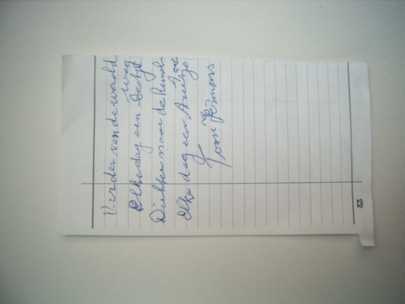 Verder van de wereld
weg
Elke dag een beetje
Dichter naar de hemel
toe
Elke dag een beetje
Joosr Hermans